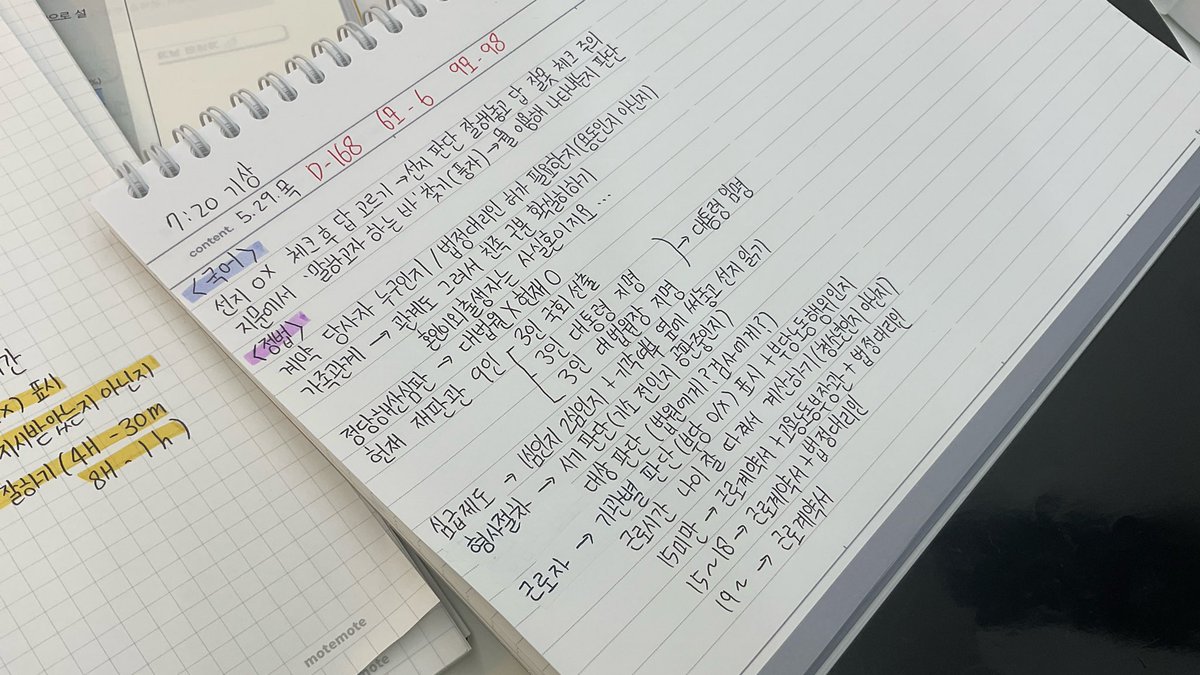 으로 설
7:20 기상
content. 5.29.목 D-168 6모-6 9모-98
<국어>
선지 OX 체크 후 답 고르기 → 선지 판단 잘해놓고 답 잘못 체크 주의
지문에서 '말하고자 하는 바' 찾기(풍자) → 뭘 이용해 나타내는지 판단
<정법>
계약 당사자 누구인지 / 법정대리인 허가 필요한지(용돈인지 아닌지)
가족관계 → 관계도 그려서 친족 구분 확실히하기
혼인이외출생자는 사실혼이지요...
정당해산심판 → 대법원 X 헌재 O
헌재 재판관 9인 [ 3인 국회 선출
3인 대통령 지명
3인 대법원장 지명
) → 대통령 임명
심급제도 → 1심인지 2심인지 + 기각여부 옆에 써놓고 선지 읽기
형사절차 → 시기 판단 (기소 전인지 공판중인지)
대상 판단 (법원에게? 검사에게?)
근로자 → 기관별 판단 (부당 O/X) 표시 + 부당노동행위인지
근로시간 나이 잘 따져서 계산하기 (청소년인지 아닌지)
15미만 → 근로계약서 + 고용노동부장관 + 법정대리인
15~18 → 근로계약서 + 법정대리인
19~ → 근로계약서
간
x) 표시
지시받았는지 아닌지
잘하기 (4개 - 30m
8개 - 1h)
motemote